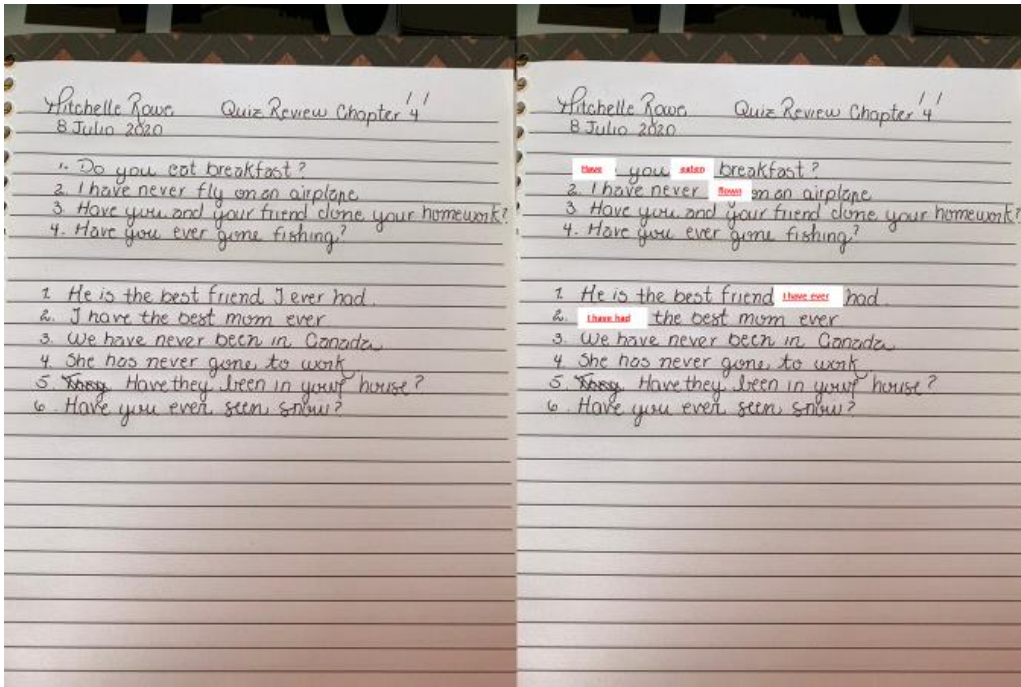 Mitchelle Rowe Quiz Review Chapter 4
8 Julio 2020
1. Do you eat breakfast?
2. I have never fly on an airplane
3. Have you and your friend done your homework?
4. Have you ever gone fishing?
1. He is the best friend I ever had.
2. I have the best mom ever
3. We have never been in Canada
4. She has never gone to work
5. They Have they been in your house?
6. Have you ever seen snow?
Mitchelle Rowe Quiz Review Chapter 4
8 Julio 2020
Have you eaten breakfast?
2. I have never flown on an airplane
3. Have you and your friend done your homework?
4. Have you ever gone fishing?
1. He is the best friend I have ever had.
2. I have had the best mom ever
3. We have never been in Canada
4. She has never gone to work
5. They Have they been in your house?
6. Have you ever seen snow?